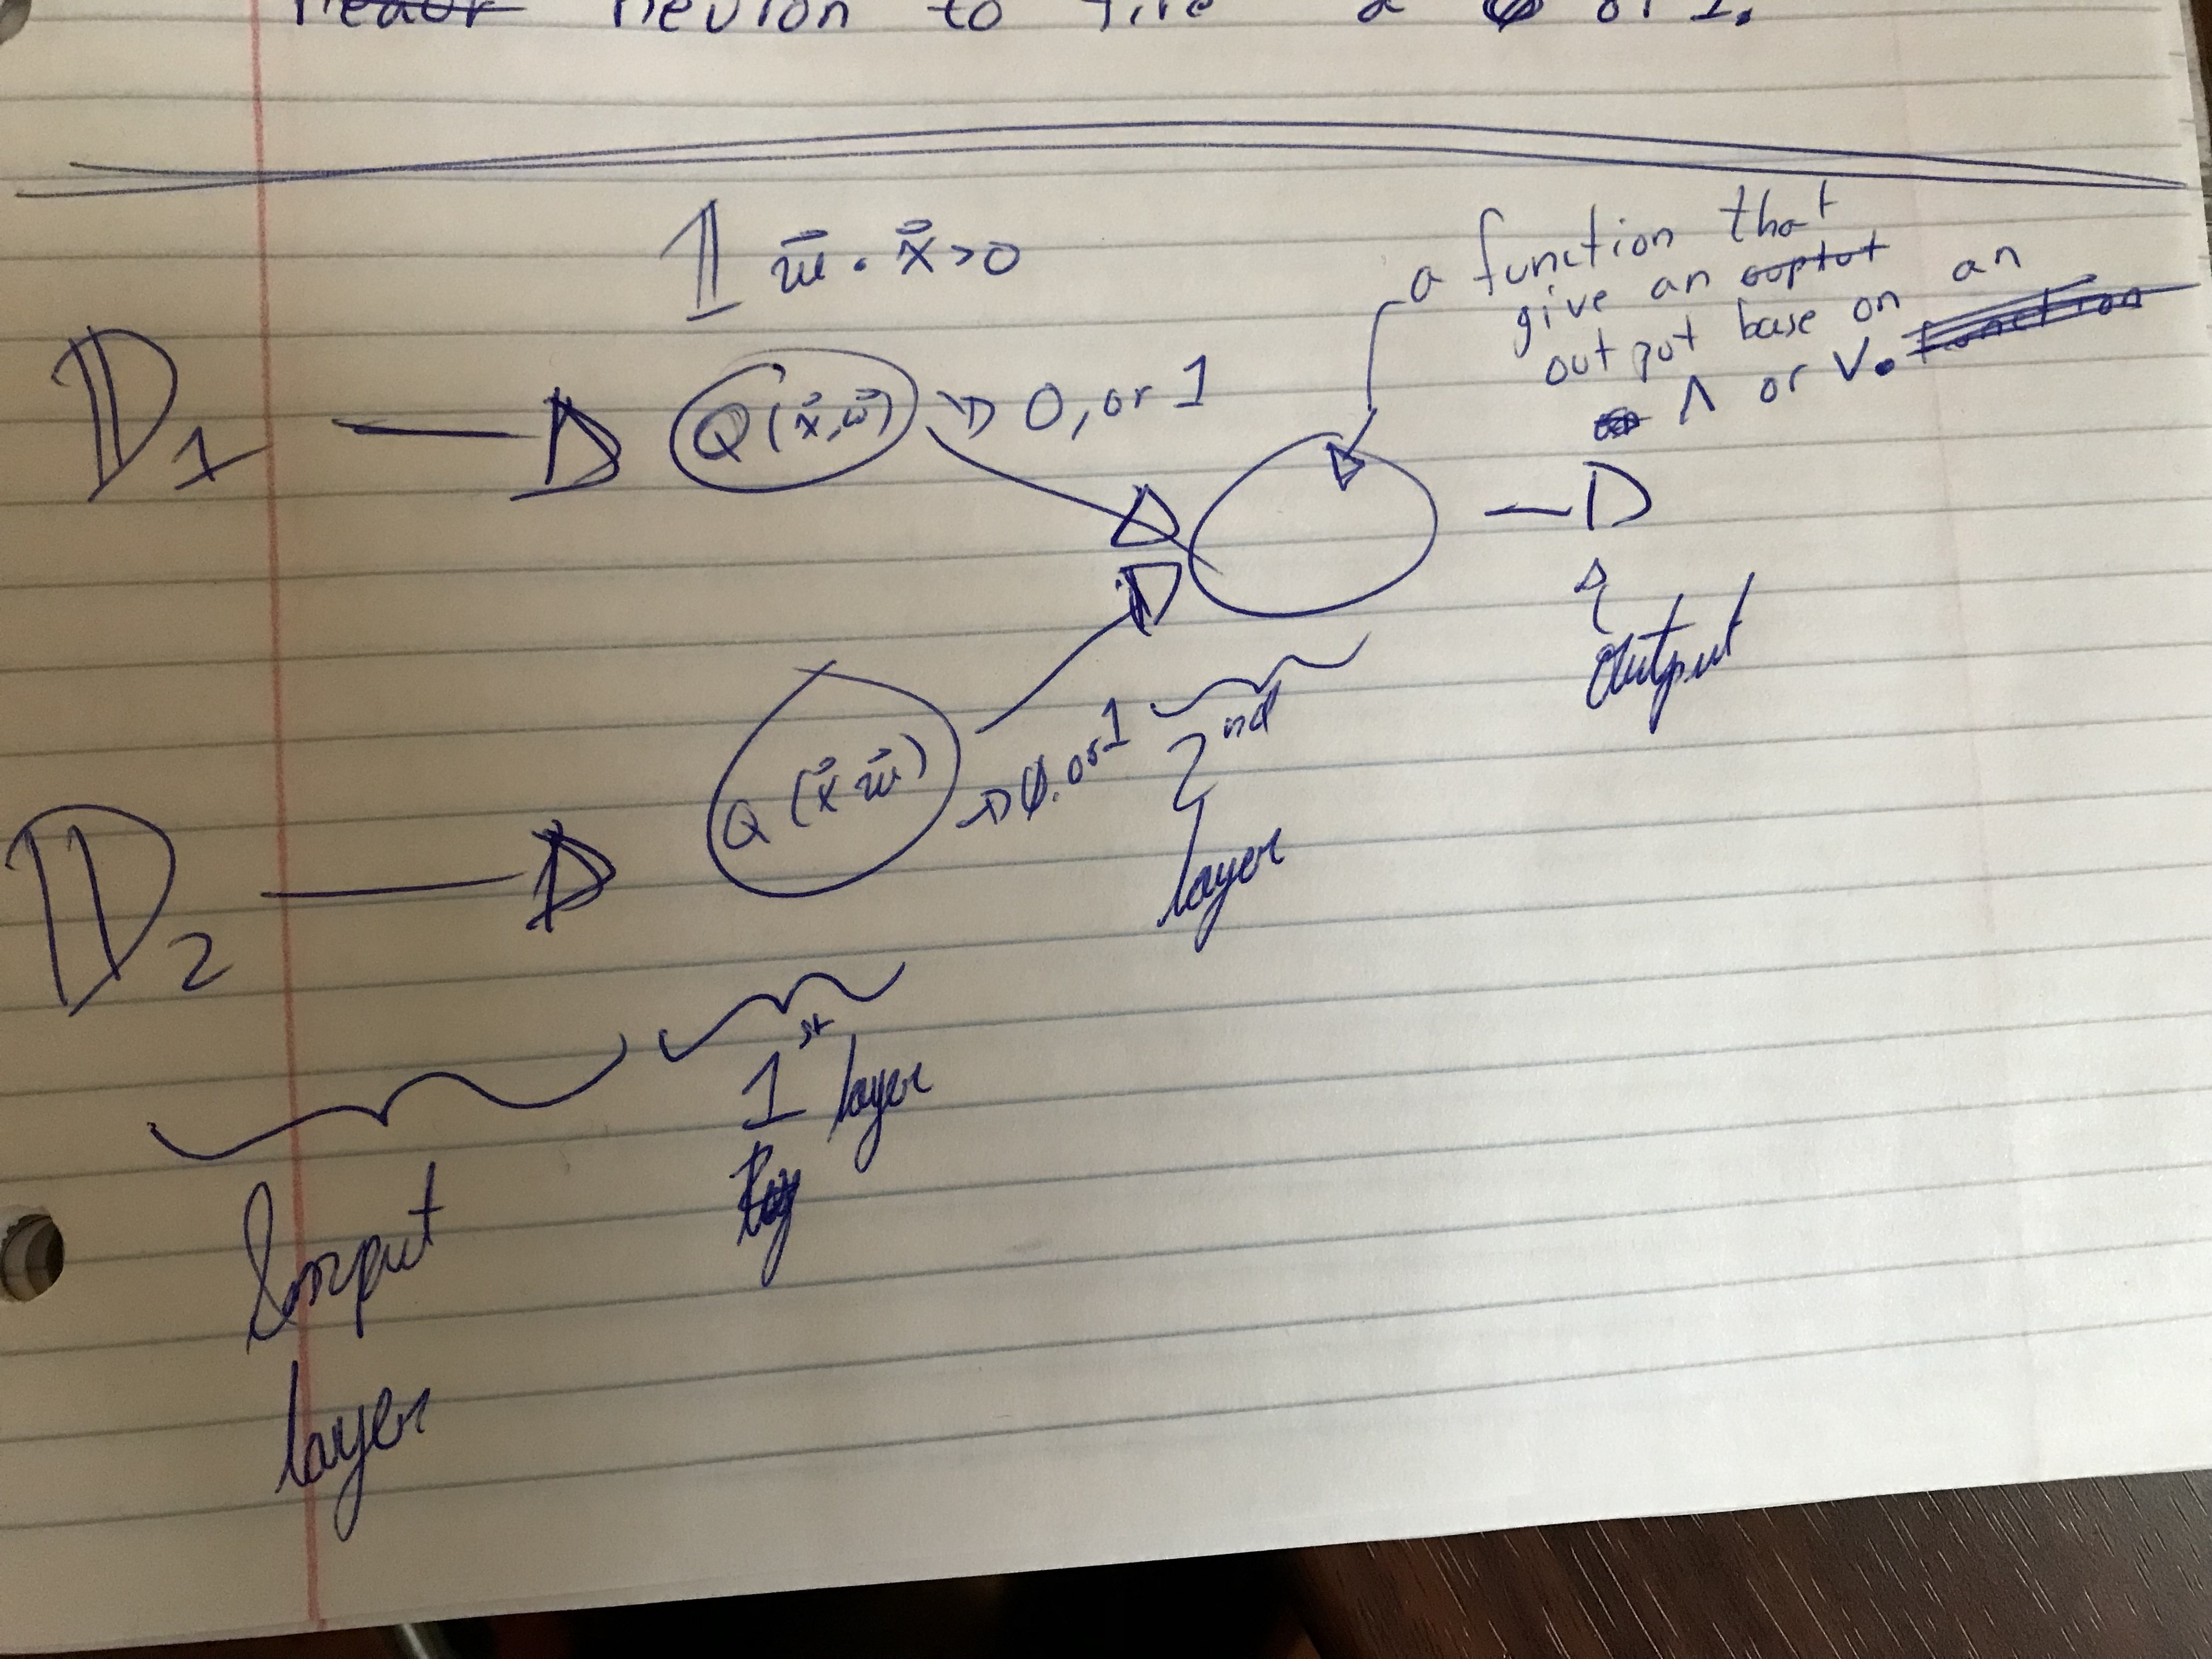 neuron to fire a 0 or 1.
𝟙 w⃗ · x⃗ > 0
a function that
give an output
output base on an
Λ or V. function
𝔻1
Q(x⃗, w⃗)
0, or 1
output
𝔻2
Q (x⃗ w⃗)
0. or 1
2nd
layer
1st layer
Input
layer